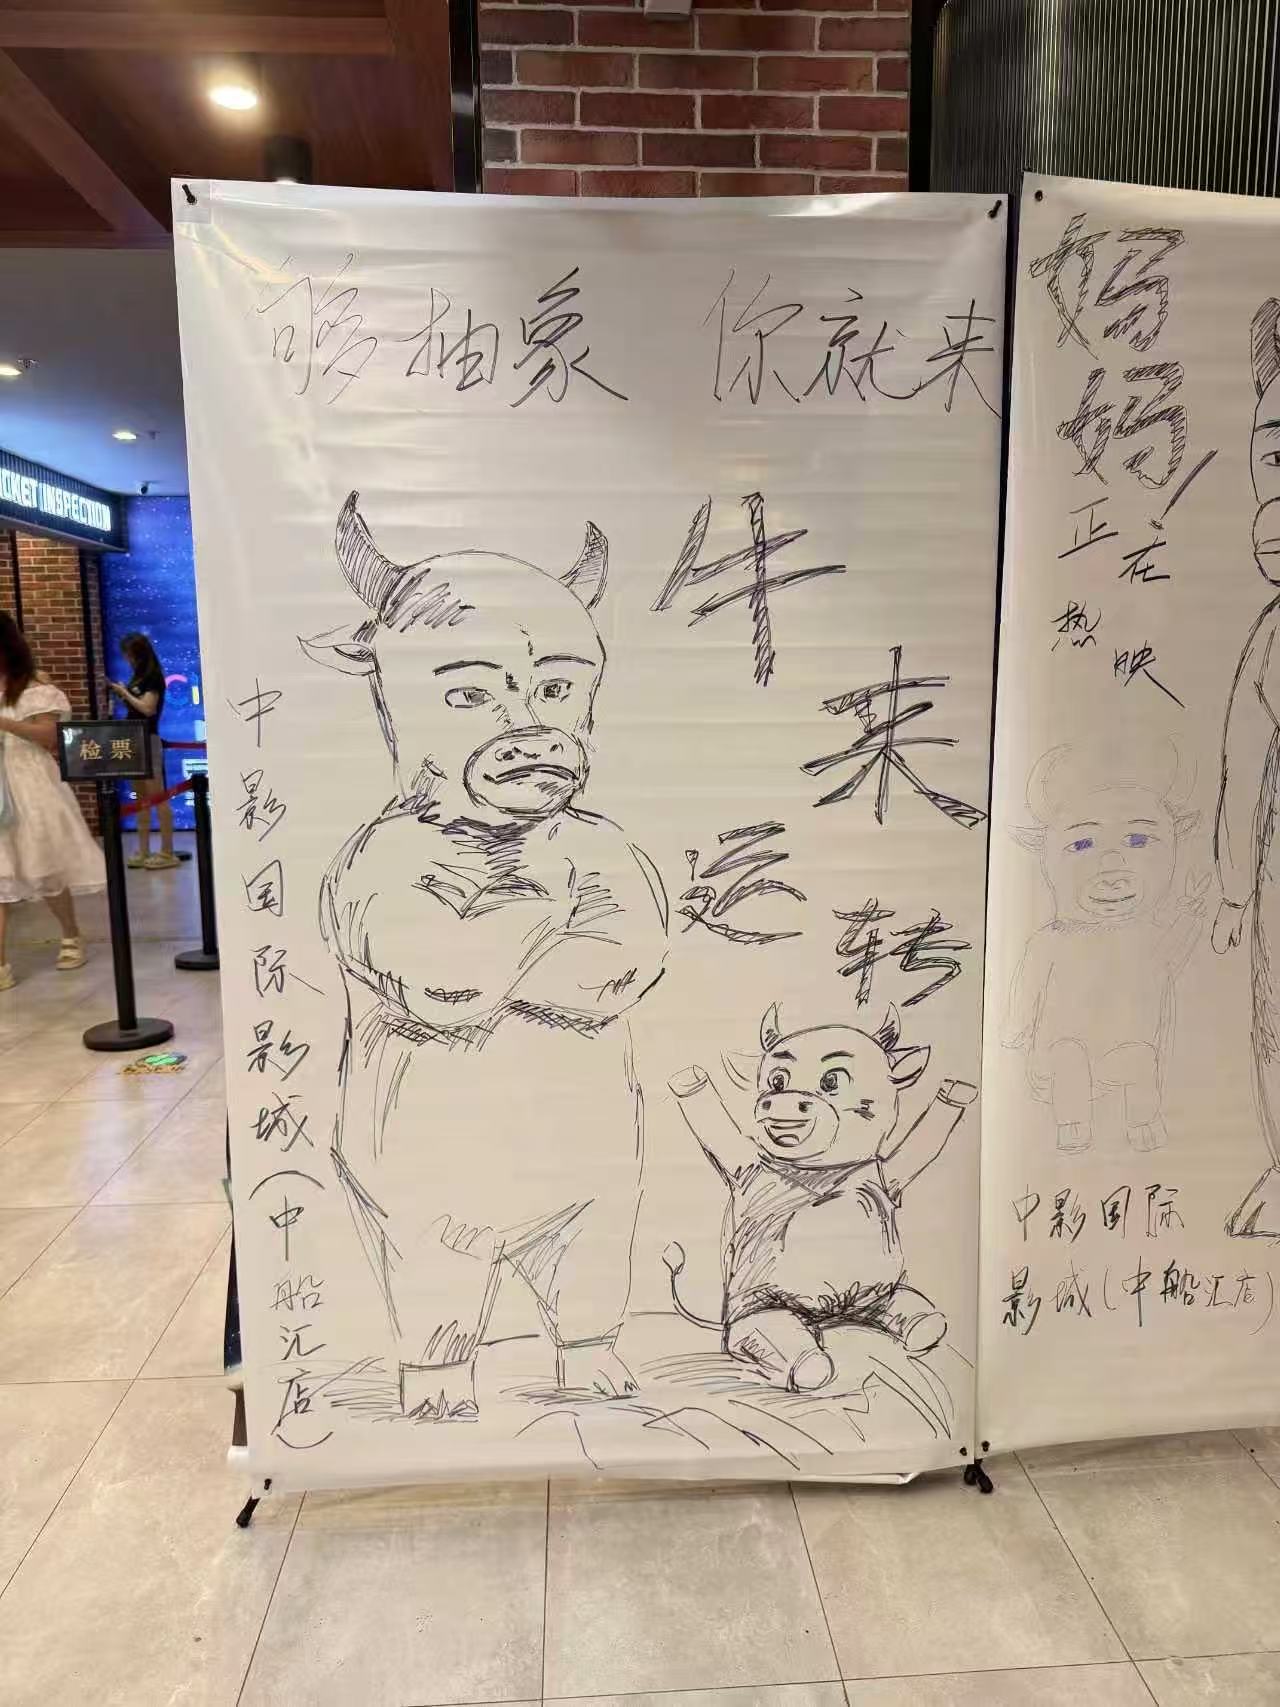 够抽象 你就来
牛来
运转
中影国际影城(中船汇店)
妈妈!
正在
热映
中影国际
影城(中船汇店)
CKET INSPECTION
检票